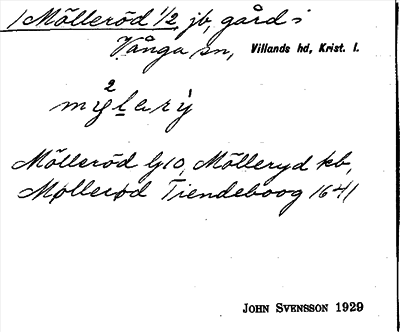 1 Mölleröd 1/2, jb, gård i
Vånga sn, Villands hd, Krist. l.
Mölleröd Gj10, Mölleryd kb,
Møllerød Tiendeboog 1641
JOHN SVENSSON 1929